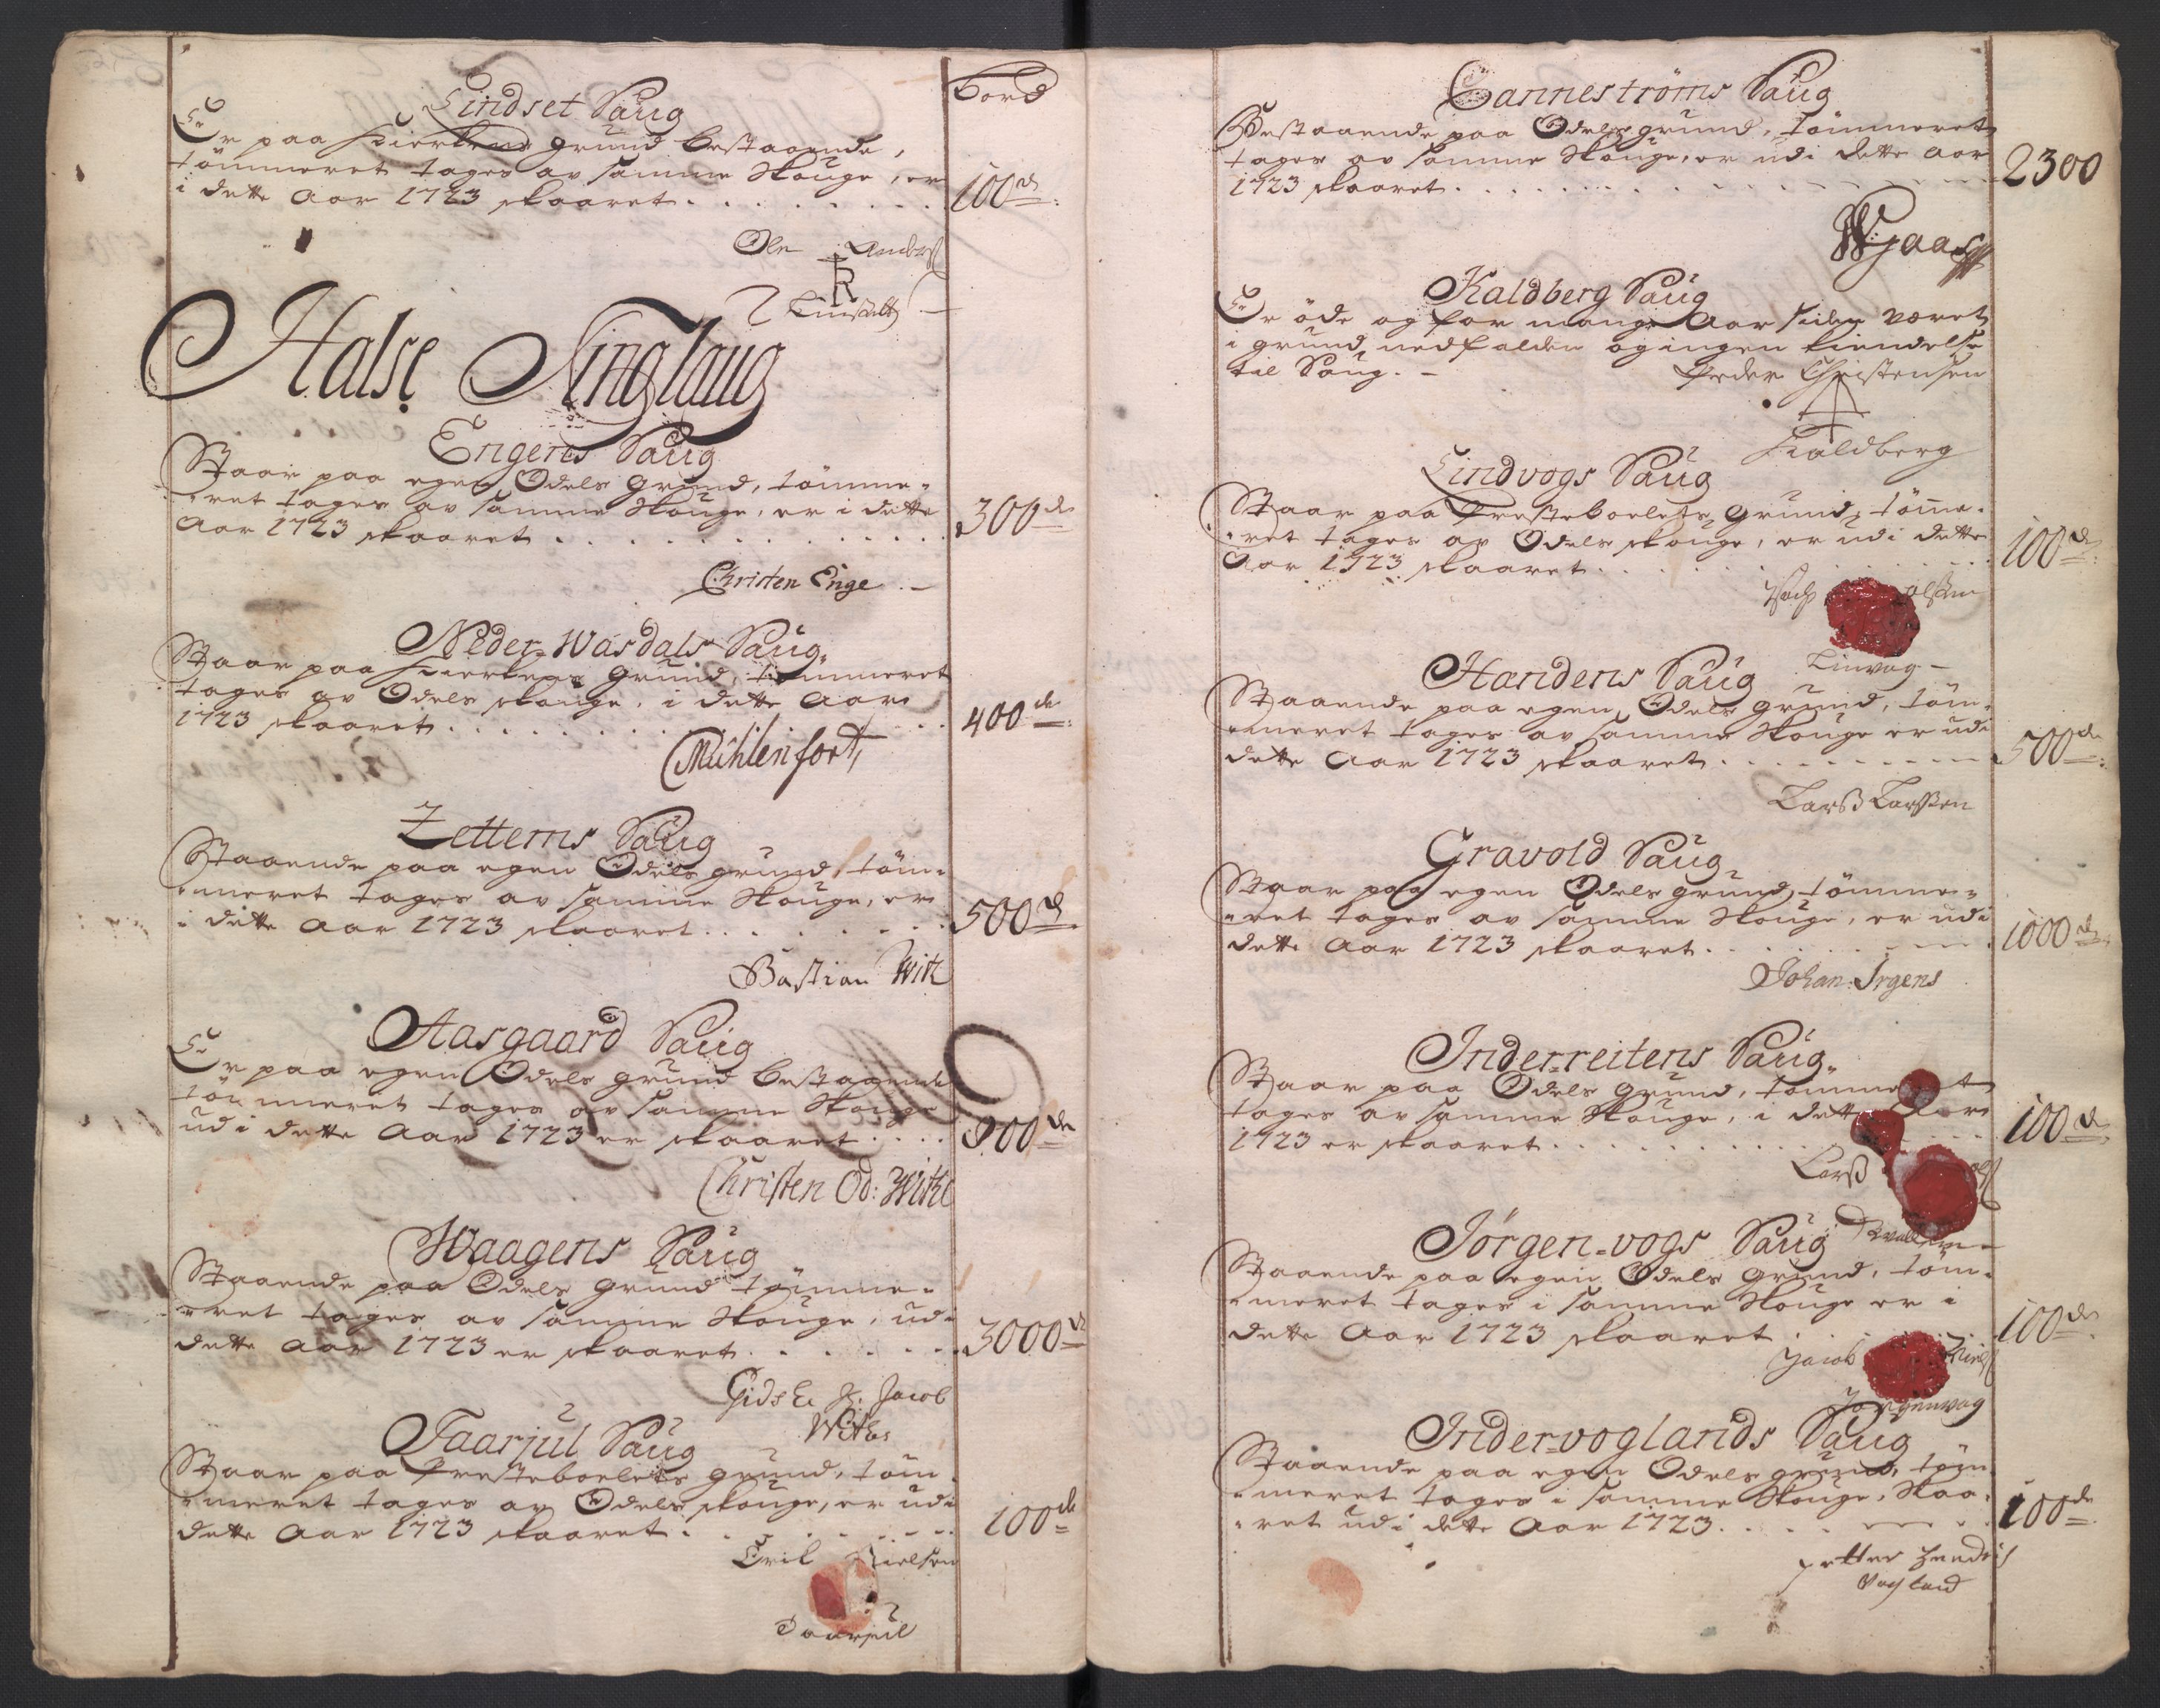 Bord
Lindset Saug
Er paa Kierkens grund bestaaende,
tømmeret tages av samme Skouge, er
i dette Aar 1723 skaaret . . . . . . . . 100 de
Ole Anders
R
Halse Tinglaug
Engens Saug
Staar paa egen Odels grund, tømme-
-ret tages av samme Skouge, er i dette
Aar 1723 skaaret . . . . . . . . 300 de
Christen Enge
Neder-Wasdals Saug
Staar paa Kierkens Grund, tømmeret
tages av Odels skouge, i dette Aar
1723 skaaret . . . . . . . . 400 de
Mühlenfort
Zetterns Saug
Staaende paa egen Odels grund, tøm-
-meret tages av samme Skouge, er
i dette Aar 1723 skaaret . . . . . . . 500 de
Bastian With
Aasgaard Saug
Er paa egen Odels grund bestaaende
tømmeret tages av samme Skouge
udi dette Aar 1723 er skaaret . . . . 900 de
Christen Od: With
Waagens Saug
Staaende paa Odels Grund tømme-
-ret tages av samme Skouge, udi
dette Aar 1723 er skaaret . . . . . . 3000 de
Jacob
Withes
Taarjul Saug
Staar paa Presteboelets grund, tøm-
-meret tages av Odels skouge, er udi
dette Aar 1723 skaaret . . . . . . . 100 de
Eril Nielsen
Taarjul
Canneströms Saug
Bestaaende paa Odels grund, tømmeret
tages av samme Skouge, er udi dette Aar
1723 skaaret . . . . . . . . 2300
Kaldberg Saug
Er öde og for mange Aar siden været
i grund nedfalden og ingen kiendelse
til Saug. -
Peder Christensen
Kaldberg
Lindvogs Saug
Staar paa Presteboelets Grund, tömme-
-ret tages av Odels skouge, er udi dette
Aar 1723 skaaret . . . . . . . . 100 de
Olsen
Linvog -
Handens Saug
Staaende paa egen Odels grund, töm-
-meret tages av samme Skouge er udi
dette Aar 1723 skaaret . . . . . . . . 500 de
Larß Larßen
Gravold Saug
Staar paa egen Odels grund, tömme-
-ret tages av samme Skouge, er udi
dette Aar 1723 skaaret . . . . . . . 1000 de
Johan Irgens
Inder-reitens Saug
Staar paa Odels Grund, tømmeret
tages av samme Skouge, i dette Aar
1723 er skaaret . . . . . . . . 100 de
Larß
Jörgen-vogs Saug
Staaende paa egen Odels Grund, töm-
-meret tages i samme Skouge er i
dette Aar 1723 skaaret . . . . . 100 de
Jacob Niels
Jørgenvog
Inder-voglands Saug
Staaende paa egen Odels grund, töm-
-meret tages i samme Skouge, Skaa-
-ret udi dette Aar 1723 . . . . . . . 100 de
petter
Vogland